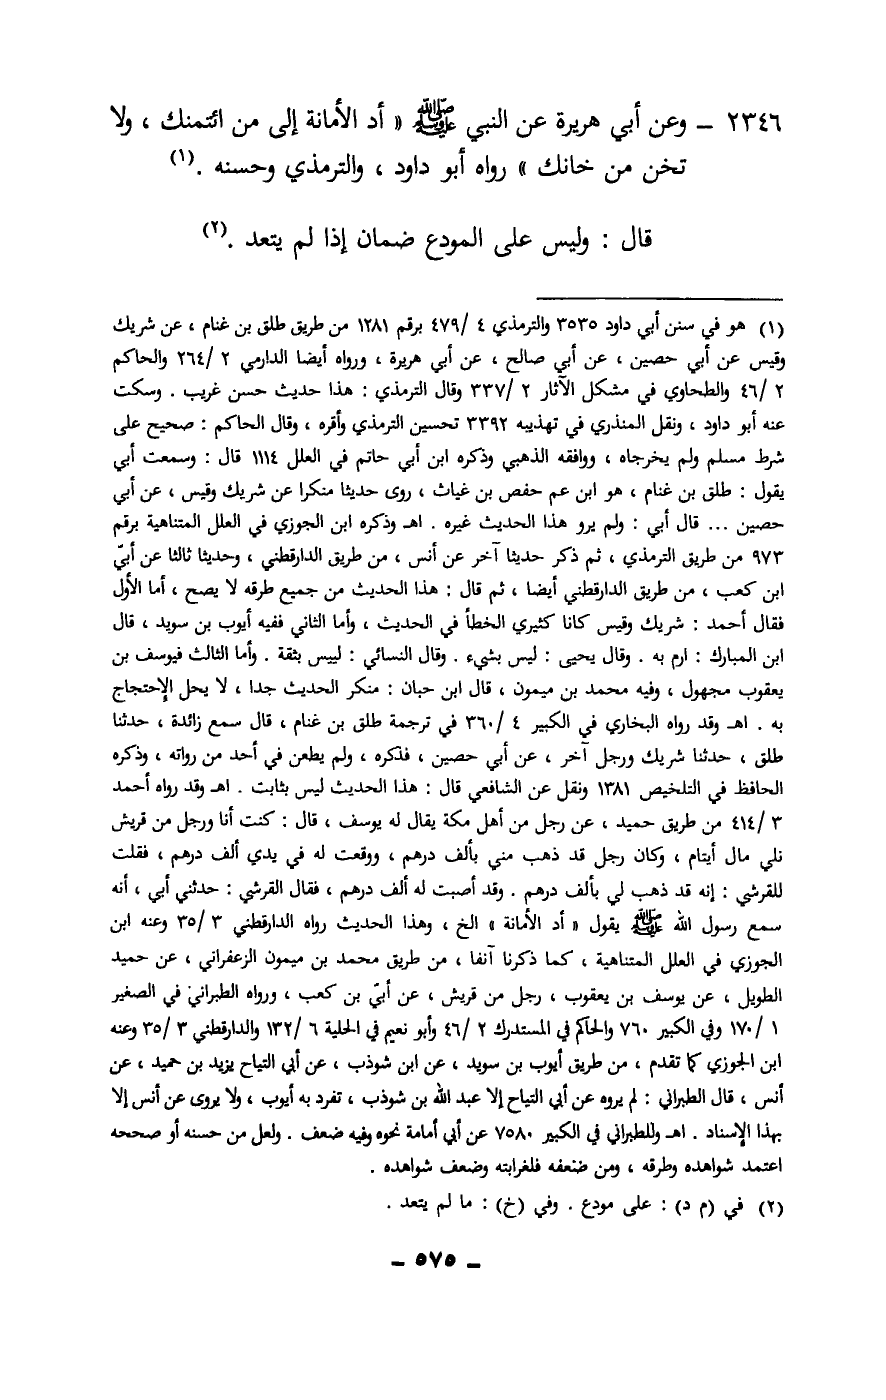 ٢٣٤٦ – وعن أبي هريرة عن النبي ﷺ « أد الأمانة إلى من ائتمنك ، ولا
تخن من خانك » رواه أبو داود ، والترمذي وحسنه .(١)
قال : وليس على المودع ضمان إذا لم يتعد .(٢)
(١) هو في سنن أبي داود ٣٥٣٥ والترمذي ٤ /٤٧٩ برقم ١٢٨١ من طريق طلق بن غنام ، عن شريك
وقيس عن أبي حصين ، عن أبي صالح ، عن أبي هريرة ، ورواه أيضا الدارمي ٢ /٢٦٤ والحاكم
٢ /٤٦ والطحاوي في مشكل الآثار ٢ /٣٣٧ وقال الترمذي : هذا حديث حسن غريب . وسكت
عنه أبو داود ، ونقل المنذري في تهذيبه ٣٣٩٢ تحسين الترمذي وأقره ، وقال الحاكم : صحيح على
شرط مسلم ولم يخرجاه ، ووافقه الذهبي وذكره ابن أبي حاتم في العلل ١١١٤ قال : وسمعت أبي
يقول : طلق بن غنام ، هو ابن عم حفص بن غياث ، روى حديثا منكرا عن شريك وقيس ، عن أبي
حصين ... قال أبي : ولم يرو هذا الحديث غيره . اهـ وذكره ابن الجوزي في العلل المتناهية برقم
٩٧٣ من طريق الترمذي ، ثم ذكر حديثا آخر عن أنس ، من طريق الدارقطني ، وحديثا ثالثا عن أبيّ
ابن كعب ، من طريق الدارقطني أيضا ، ثم قال : هذا الحديث من جميع طرقه لا يصح ، أما الأول
فقال أحمد : شريك وقيس كانا كثيري الخطأ في الحديث ، وأما الثاني ففيه أيوب بن سويد ، قال
ابن المبارك : ارم به . وقال يحيى : ليس بشيء . وقال النسائي : لييس بثقة . وأما الثالث فيوسف بن
يعقوب مجهول ، وفيه محمد بن ميمون ، قال ابن حبان : منكر الحديث جدا ، لا يحل الإحتجاج
به . اهـ وقد رواه البخاري في الكبير ٤ /٣٦٠ في ترجمة طلق بن غنام ، قال سمع زائدة ، حدثنا
طلق ، حدثنا شريك ورجل آخر ، عن أبي حصين ، فذكره ، ولم يطعن في أحد من رواته ، وذكره
الحافظ في التلخيص ١٣٨١ ونقل عن الشافعي قال : هذا الحديث ليس بثابت . اهـ وقد رواه أحمد
٣ /٤١٤ من طريق حميد ، عن رجل من أهل مكة يقال له يوسف ، قال : كنت أنا ورجل من قريش
نلي مال أيتام ، وكان رجل قد ذهب مني بألف درهم ، ووقعت له في يدي ألف درهم ، فقلت
للقرشي : إنه قد ذهب لي بألف درهم . وقد أصبت له ألف درهم ، فقال القرشي : حدثني أبي ، أنه
سمع رسول الله ﷺ يقول « أد الأمانة » الخ ، وهذا الحديث رواه الدارقطني ٣ /٣٥ وعنه ابن
الجوزي في العلل المتناهية ، كما ذكرنا آنفا ، من طريق محمد بن ميمون الزعفراني ، عن حميد
الطويل ، عن يوسف بن يعقوب ، رجل من قريش ، عن أبيّ بن كعب ، ورواه الطبراني في الصغير
١ /١٧٠ وفي الكبير ٧٦٠ والحاكم في المستدرك ٢ /٤٦ وأبو نعيم في الحلية ٦ /١٣٢ والدارقطني ٣ /٣٥ وعنه
ابن الجوزي كما تقدم ، من طريق أيوب بن سويد ، عن ابن شوذب ، عن أبي التياح يزيد بن حميد ، عن
أنس ، قال الطبراني : لم يروه عن أبي التياح إلا عبد الله بن شوذب ، تفرد به أيوب ، ولا يروى عن أنس إلا
بهذا الإسناد . اهـ وللطبراني في الكبير ٧٥٨٠ عن أبي أمامة نحوه وفيه ضعف . ولعل من حسنه أو صححه
اعتمد شواهده وطرقه ، ومن ضعفه فلغرابته وضعف شواهده .
(٢) في (م د) : على مودع . وفي (خ) : ما لم يتعد .
– ٥٧٥ –